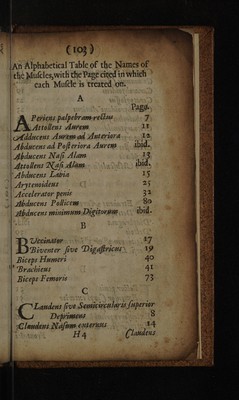 (103)
An Alphabetical Table of the Names of
the Muscles, with the Page cited in which
each Muscle is treated on.
A
Page.
APeriens palpebram rectus 7
Attollens Aurem 11
Adducens Aurem ad Anteriora 12
Abducens ad Posteriora Aurem ibid.
Abducens Nasi Alam 13
Attollens Nasi Alam ibid.
Abducens Labia 15
Arytenoideus 25
Accelerator penis 32
Abducens Pollicem 80
Abducens minimum Digitorum ibid.
B
BUccinator 17
Biventer sive Digastricus 19
Biceps Humeri 40
Brachieus 41
Biceps Femoris 73
C
CLaudens sive Semicircularis superior
Deprimens 8
Claudens Nasum externus 14
H4 Claudens